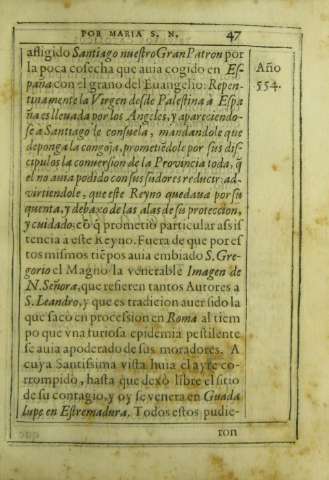 POR MARIA S. N. 47
afligido Santiago nuestro Gran Patron por
la poca cosecha que auia cogido en Es-
paña con el grano del Euangelio: Repen-
tinamente la Virgen desde Palestina à Espa
ña es lleuada por los Angeles, y apareciendo-
se a Santiago le consuela, mandandole que
deponga la congoja, prometiẽdole por sus dis-
cipulos la conuersion de la Prouincia toda, q̃
el no auia podido con sus sudores reducir: ad-
virtiendole, que este Reyno quedaua por su
quenta, y debaxo de las alas de su proteccion,
y cuidado, cõ q̃ prometiò particular assis
tencia a este Reyno. Fuera de que por es
tos mismos tiẽpos auia embiado S. Gre-
gorio el Magno la venerable Imagen de
N. Señora, que refieren tantos Autores a
S. Leandro, y que es tradicion auer sido la
que sacò en procession en Roma al tiem
po que vna furiosa epidemia pestilente
se auia apoderado de sus moradores. A
cuya Santissima vista huia el ayre co-
rrompido, hasta que dexò libre el sitio
de su contagio, y oy se venera en Guada
lupe en Estremadura. Todos estos pudie-
ron
Año
554.